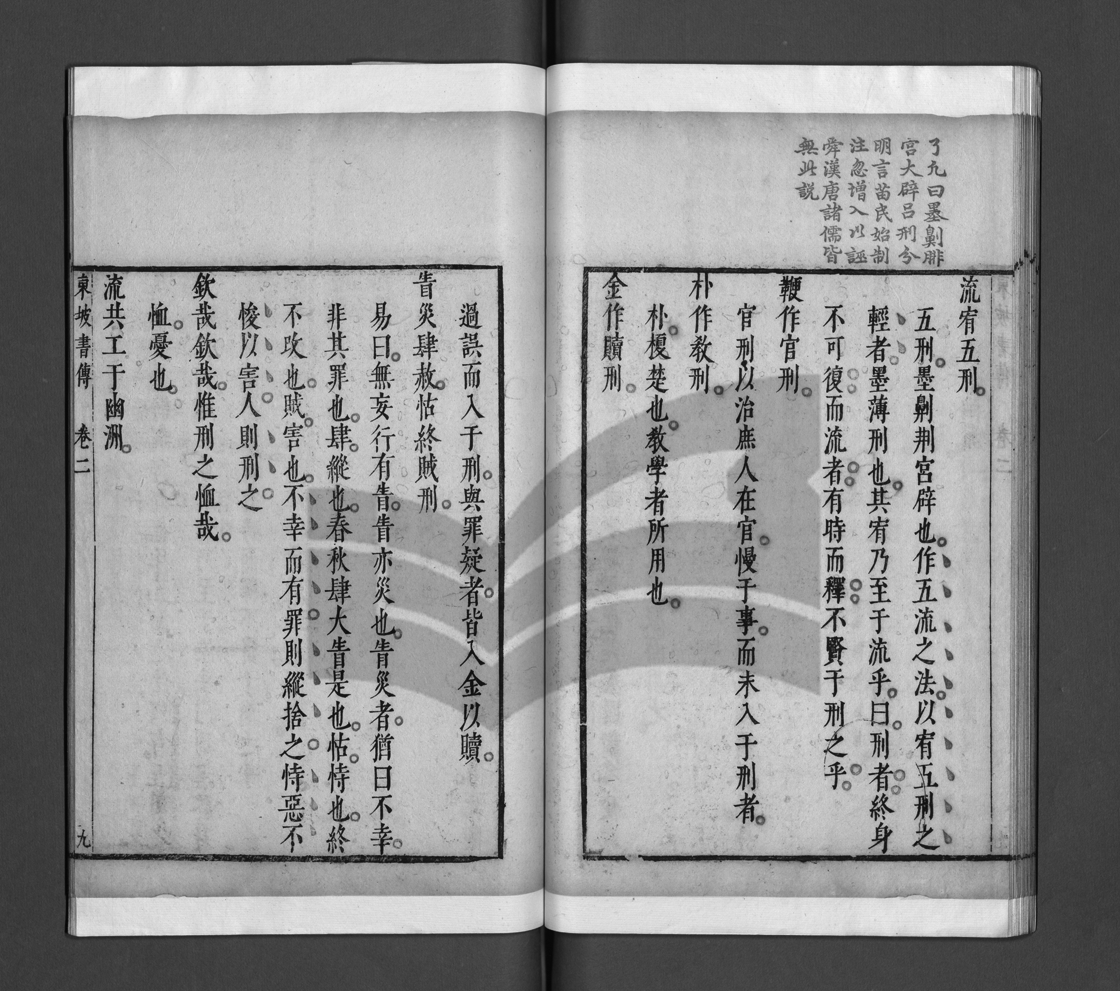 了凡曰墨劓腓
宮大辟呂刑分
明言苗民始制
注忽增入以誣
舜漢唐諸儒皆
無此說
流宥五刑
五刑墨劓荆宮辟也作五流之法以宥五刑之
輕者墨薄刑也其宥乃至于流乎曰刑者終身
不可復而流者有時而釋不賢于刑之乎
鞭作官刑
官刑以治庶人在官慢于事而未入于刑者
朴作教刑
朴榎楚也教學者所用也
金作贖刑
過誤而入于刑與罪疑者皆入金以贖
眚災肆赦怙終賊刑
易曰無妄行有眚眚亦災也眚災者猶曰不幸
非其罪也肆縱也春秋肆大眚是也怙恃也終
不攺也賊害也不幸而有罪則縱捨之恃惡不
悛以害人則刑之
欽哉欽哉惟刑之恤哉
恤憂也
流共工于幽洲
東坡書傳 卷二 九